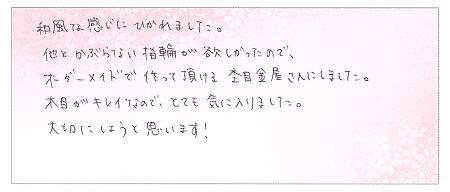 和風な感じにひかれました。
他とかぶらない指輪が欲しかったので、
オーダーメイドで作って頂ける杢目金屋さんにしました。
木目がキレイなので、とても気に入りました。
大切にしようと思います!